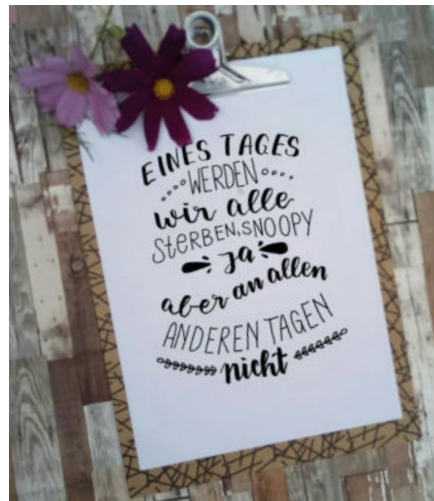 EINES TAGES
WERDEN
wir alle
STERBEN, SNOOPY
ja
aber an allen
ANDEREN TAGEN
nicht